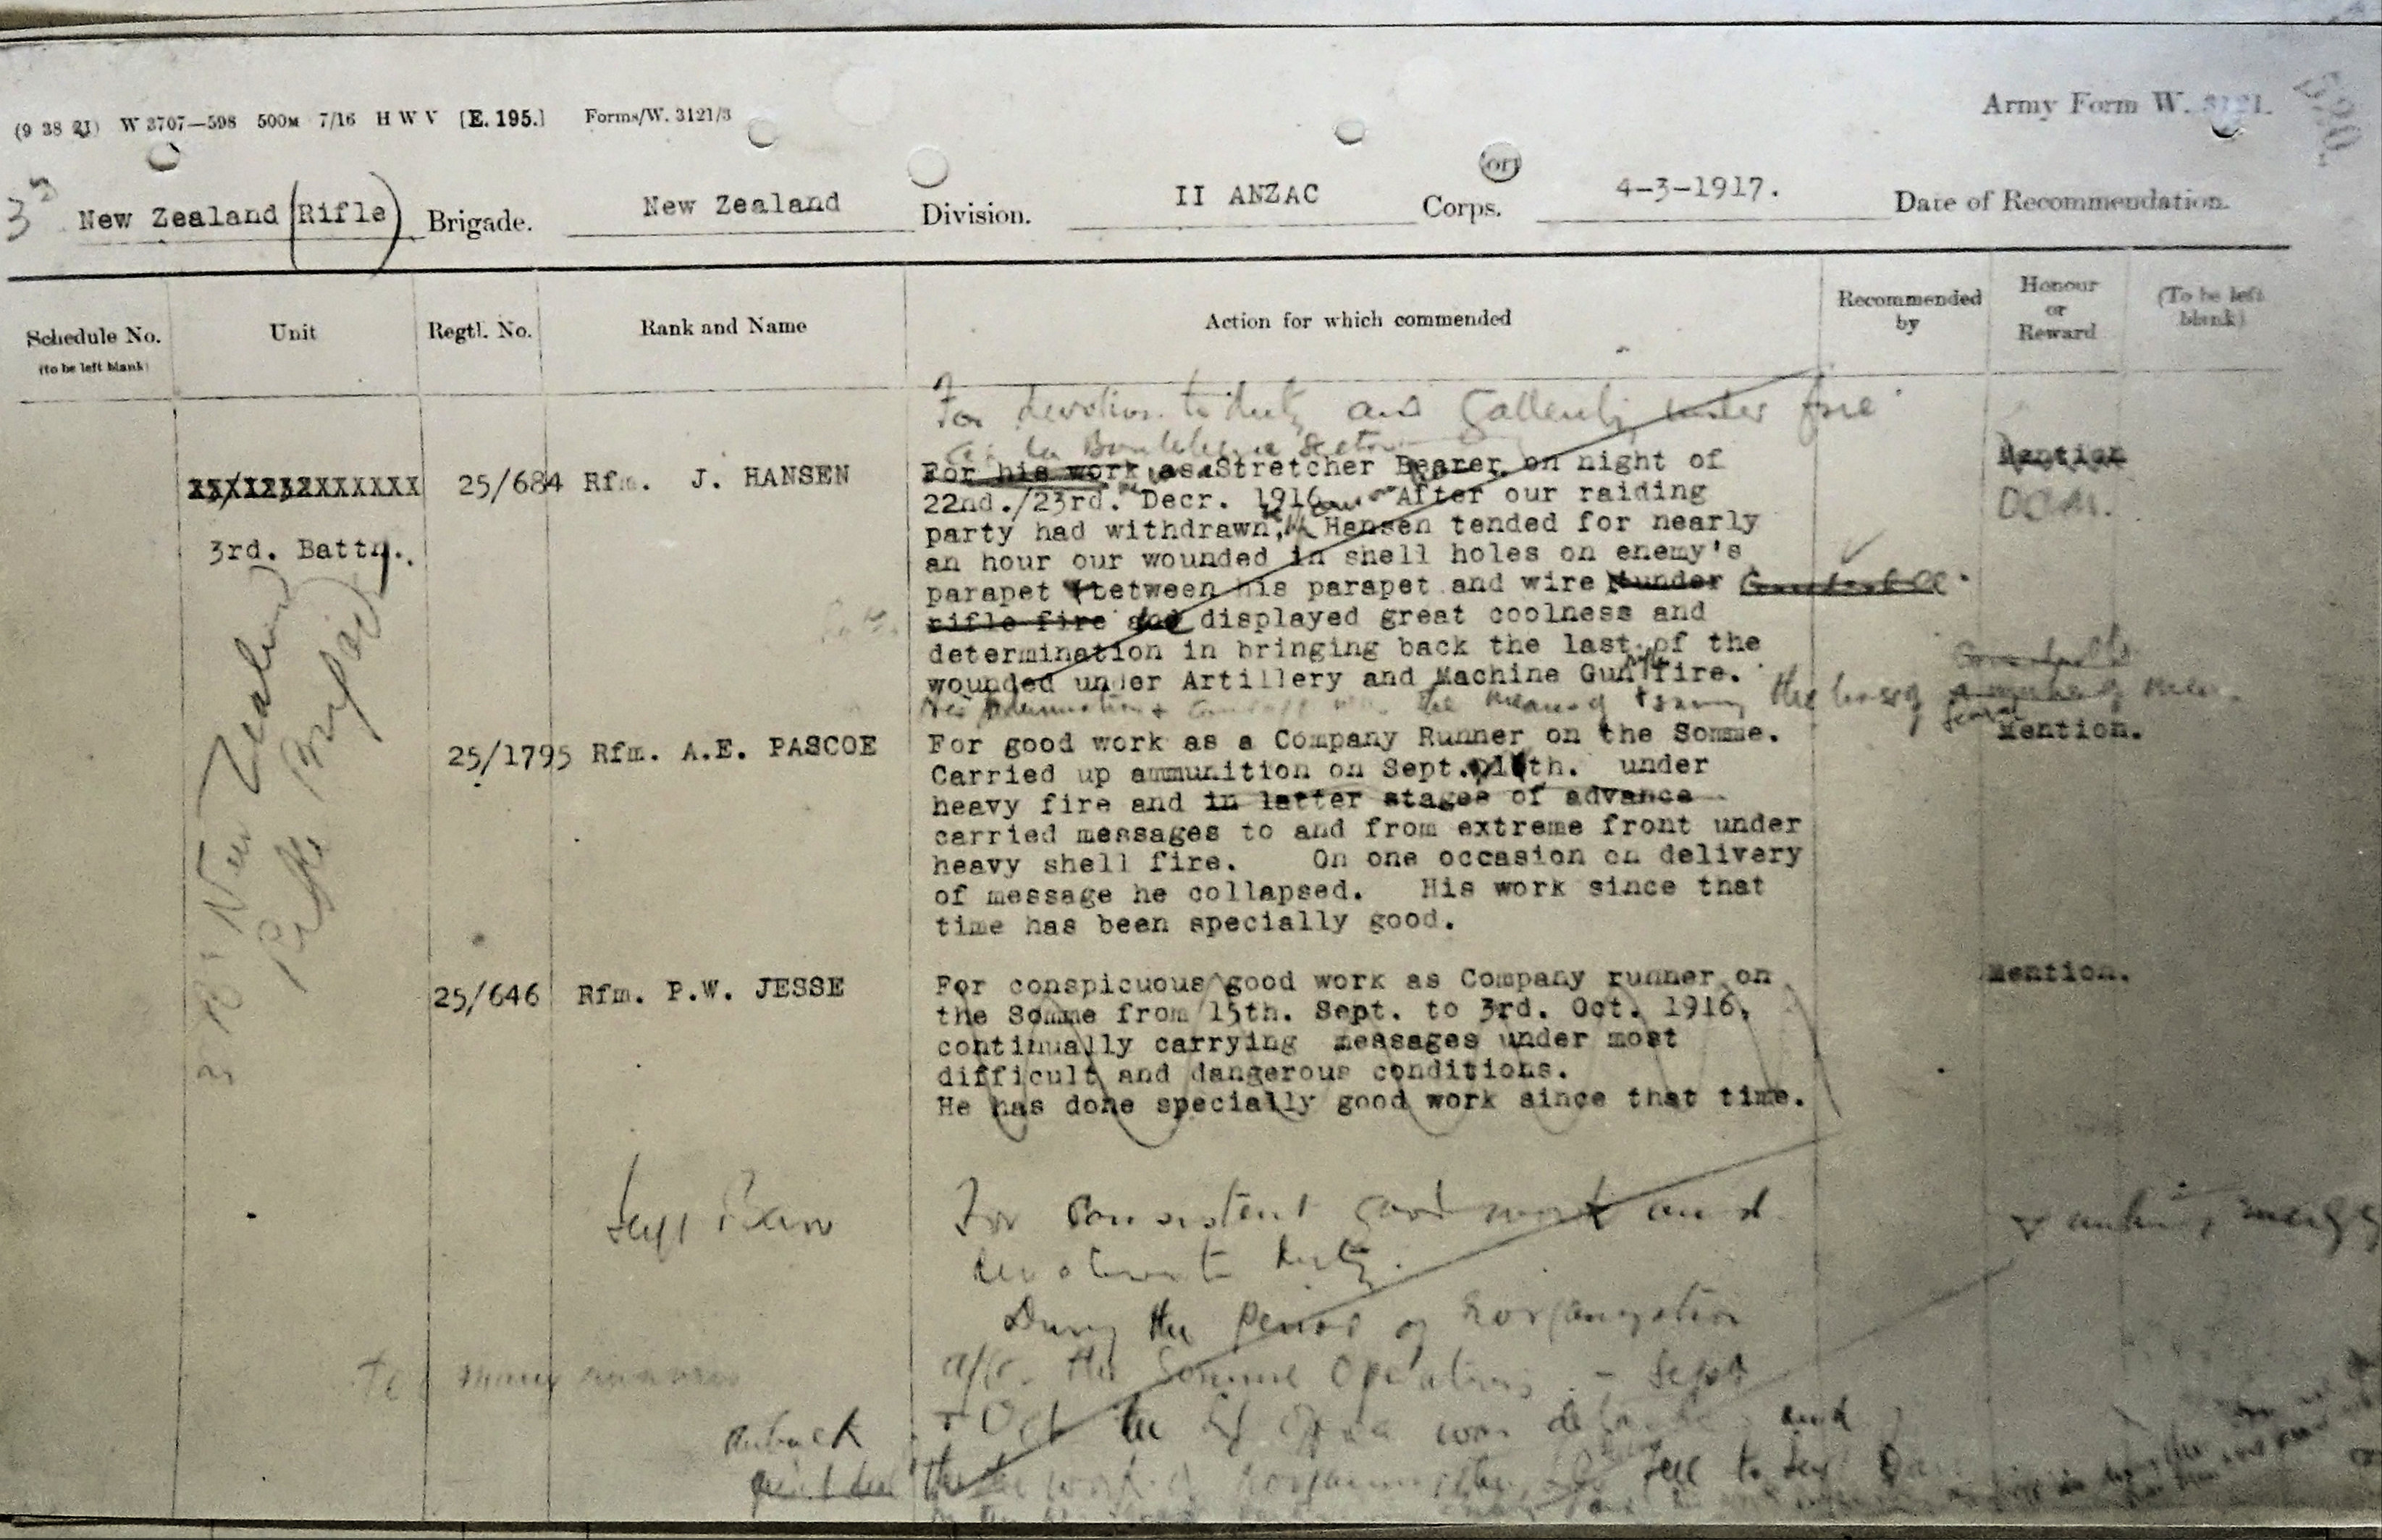 (9 38 21) W 3707—598 500M 7/16 H W V [E. 195.] Forms/W. 3121/3
Army Form W. 3121.
3rd New Zealand (Rifle) Brigade. New Zealand Division. II ANZAC Corps. 4-3-1917. Date of Recommendation.
Schedule No. (to be left blank) Unit Regtl. No. Rank and Name Action for which commended Recommended by Honour or Reward (To be left blank)
For devotion to duty and gallantry under fire
Sector
25/684 Rfm. J. HANSEN
3rd. Battn.
For his work as a Stretcher Bearer on night of
22nd./23rd. Decr. 1916 After our raiding
party had withdrawn, Hansen tended for nearly
an hour our wounded in shell holes on enemy's
parapet between his parapet and wire under
rifle fire and displayed great coolness and
determination in bringing back the last of the
wounded under Artillery and Machine Gun fire.
the means of saving the lives of several men.
Mention
DCM.
3 Bn New Zealand
Rifle Brigade
25/1795 Rfm. A.E. PASCOE
For good work as a Company Runner on the Somme.
Carried up ammunition on Sept. th. under
heavy fire and in latter stages of advance
carried messages to and from extreme front under
heavy shell fire. On one occasion on delivery
of message he collapsed. His work since that
time has been specially good.
Mention.
25/646 Rfm. P.W. JESSE
For conspicuous good work as Company runner on
the Somme from 15th. Sept. to 3rd. Oct. 1916,
continually carrying messages under most
difficult and dangerous conditions.
He has done specially good work since that time.
Mention.
For consistent good work and
devotion to duty.
During the period of reorganization
after the Somme Operations - Sept
+ Oct the was and
the work of reorganization fell to